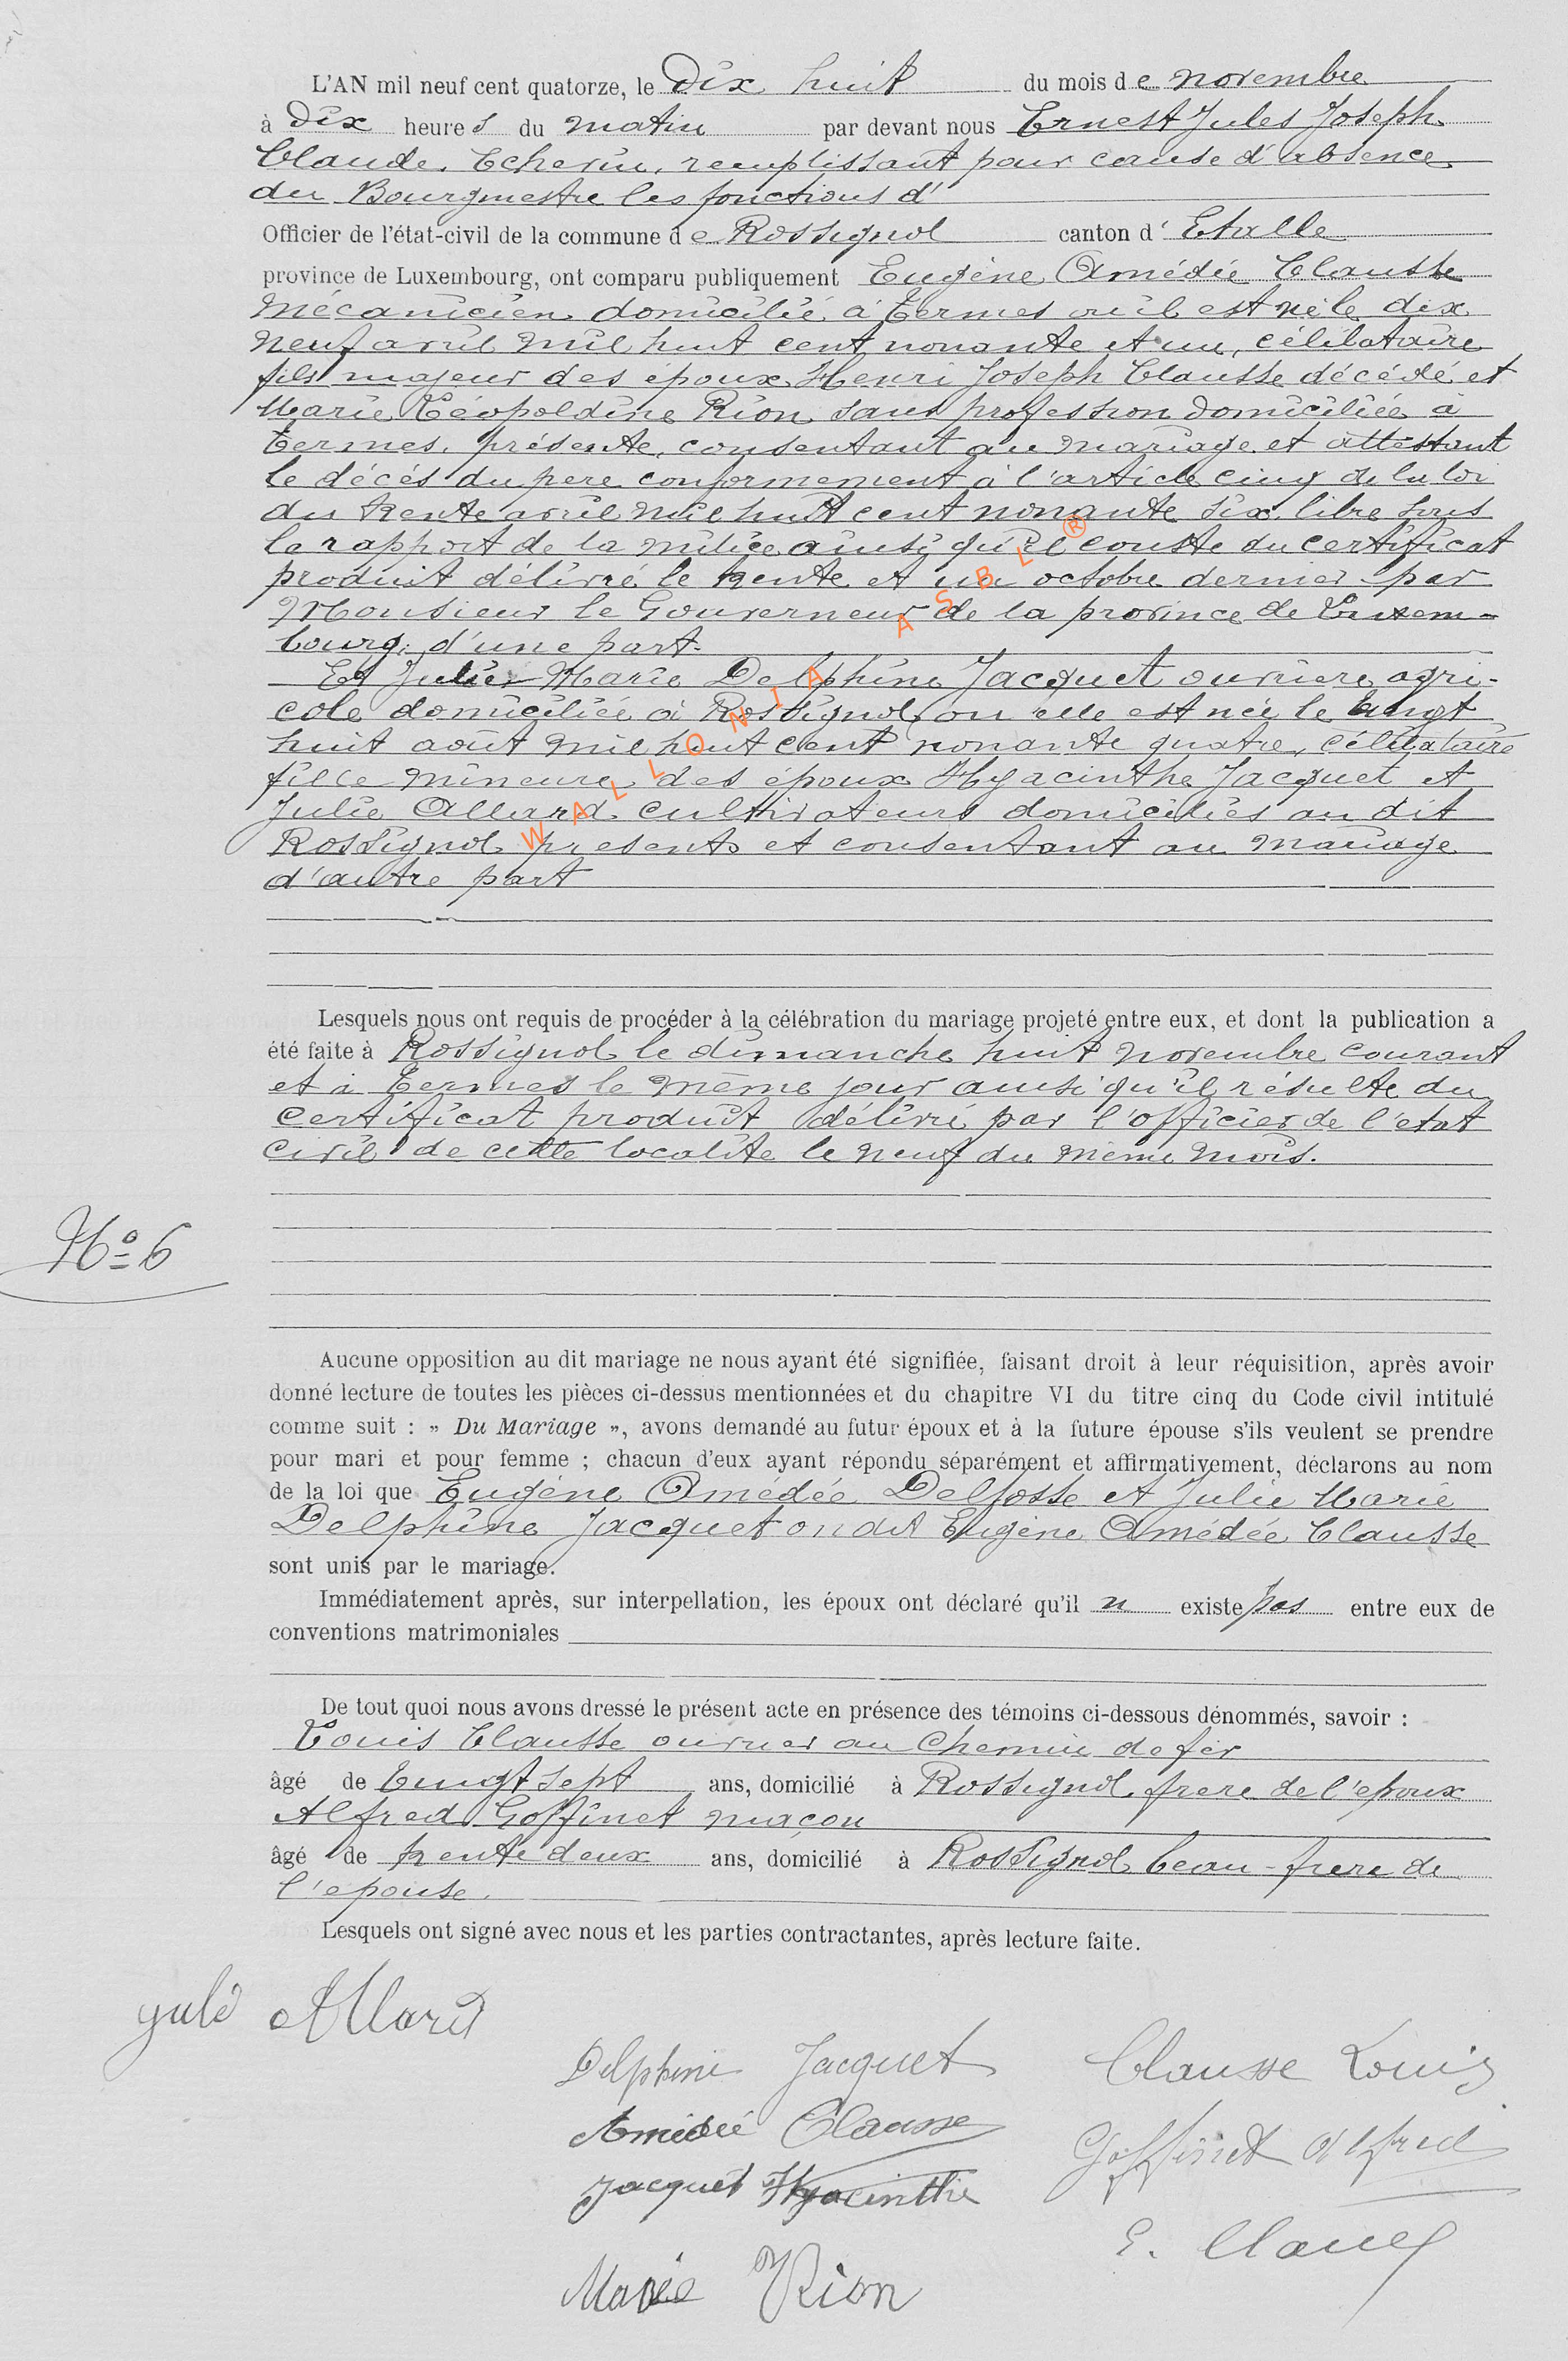 L'AN mil neuf cent quatorze, le Dix huit du mois de novembre
à Dix heures du matin par devant nous Ernest Jules Joseph
Claude, Echevin, remplissant pour cause d'absence
du Bourgmestre les fonctions d'
Officier de l'état-civil de la commune de Rossignol canton d'Etalle
province de Luxembourg, ont comparu publiquement Eugène Amédée Clausse
mécanicien domicilié à Termes où il est né le dix
neuf avril mil huit cent nonante et un, célibataire
fils majeur des époux Henri Joseph Clausse décédé et
Marie Léopoldine Rion sans profession domiciliée à
Termes, présente, consentant au mariage et attestant
le décès du père conformement à l'article cinq de la loi
du trente avril mil huit cent nonante six, libre sous
le rapport de la milice ainsi qu'il conste du certificat
produit délivré le trente et un octobre dernier par
Monsieur le Gouverneur de la province de Luxem-
bourg, d'une part.
Et Julie Marie Delphine Jacquet ouvrière agri-
cole domiciliée à Rossignol, où elle est née le vingt
huit août mil huit cent nonante quatre, célibataire
fille mineure des époux Hyacinthe Jacquet et
Julie Allard cultivateurs domiciliés au dit
Rossignol présents et consentant au mariage
d'autre part
WALLONIA ASBL ®
Lesquels nous ont requis de procéder à la célébration du mariage projeté entre eux, et dont la publication a
été faite à Rossignol le dimanche huit novembre courant
et à Termes le même jour ainsi qu'il résulte du
certificat produit délivré par l'officier de l'etat
civil de cette localité le neuf du même mois.
No 6
Aucune opposition au dit mariage ne nous ayant été signifiée, faisant droit à leur réquisition, après avoir
donné lecture de toutes les pièces ci-dessus mentionnées et du chapitre VI du titre cinq du Code civil intitulé
comme suit : » Du Mariage », avons demandé au futur époux et à la future épouse s'ils veulent se prendre
pour mari et pour femme ; chacun d'eux ayant répondu séparément et affirmativement, déclarons au nom
de la loi que Eugène Amédée Delfosse et Julie Marie
Delphine Jacquet on dit Eugène Amédée Clausse
sont unis par le mariage.
Immédiatement après, sur interpellation, les époux ont déclaré qu'il n existe pas entre eux de
conventions matrimoniales
De tout quoi nous avons dressé le présent acte en présence des témoins ci-dessous dénommés, savoir :
Louis Clausse ouvrier au Chemin de fer
âgé de Vingt sept ans, domicilié à Rossignol, frere de l'epoux
Alfred Goffinet maçon
âgé de trente deux ans, domicilié à Rossignol beau-frere de
l'epouse.
Lesquels ont signé avec nous et les parties contractantes, après lecture faite.
Allard
Delphine Jacquet Clausse Louis
Amédée Clausse Goffinet Alfred
Jacquet Hyacinthe
E. Claude
Marie Rion